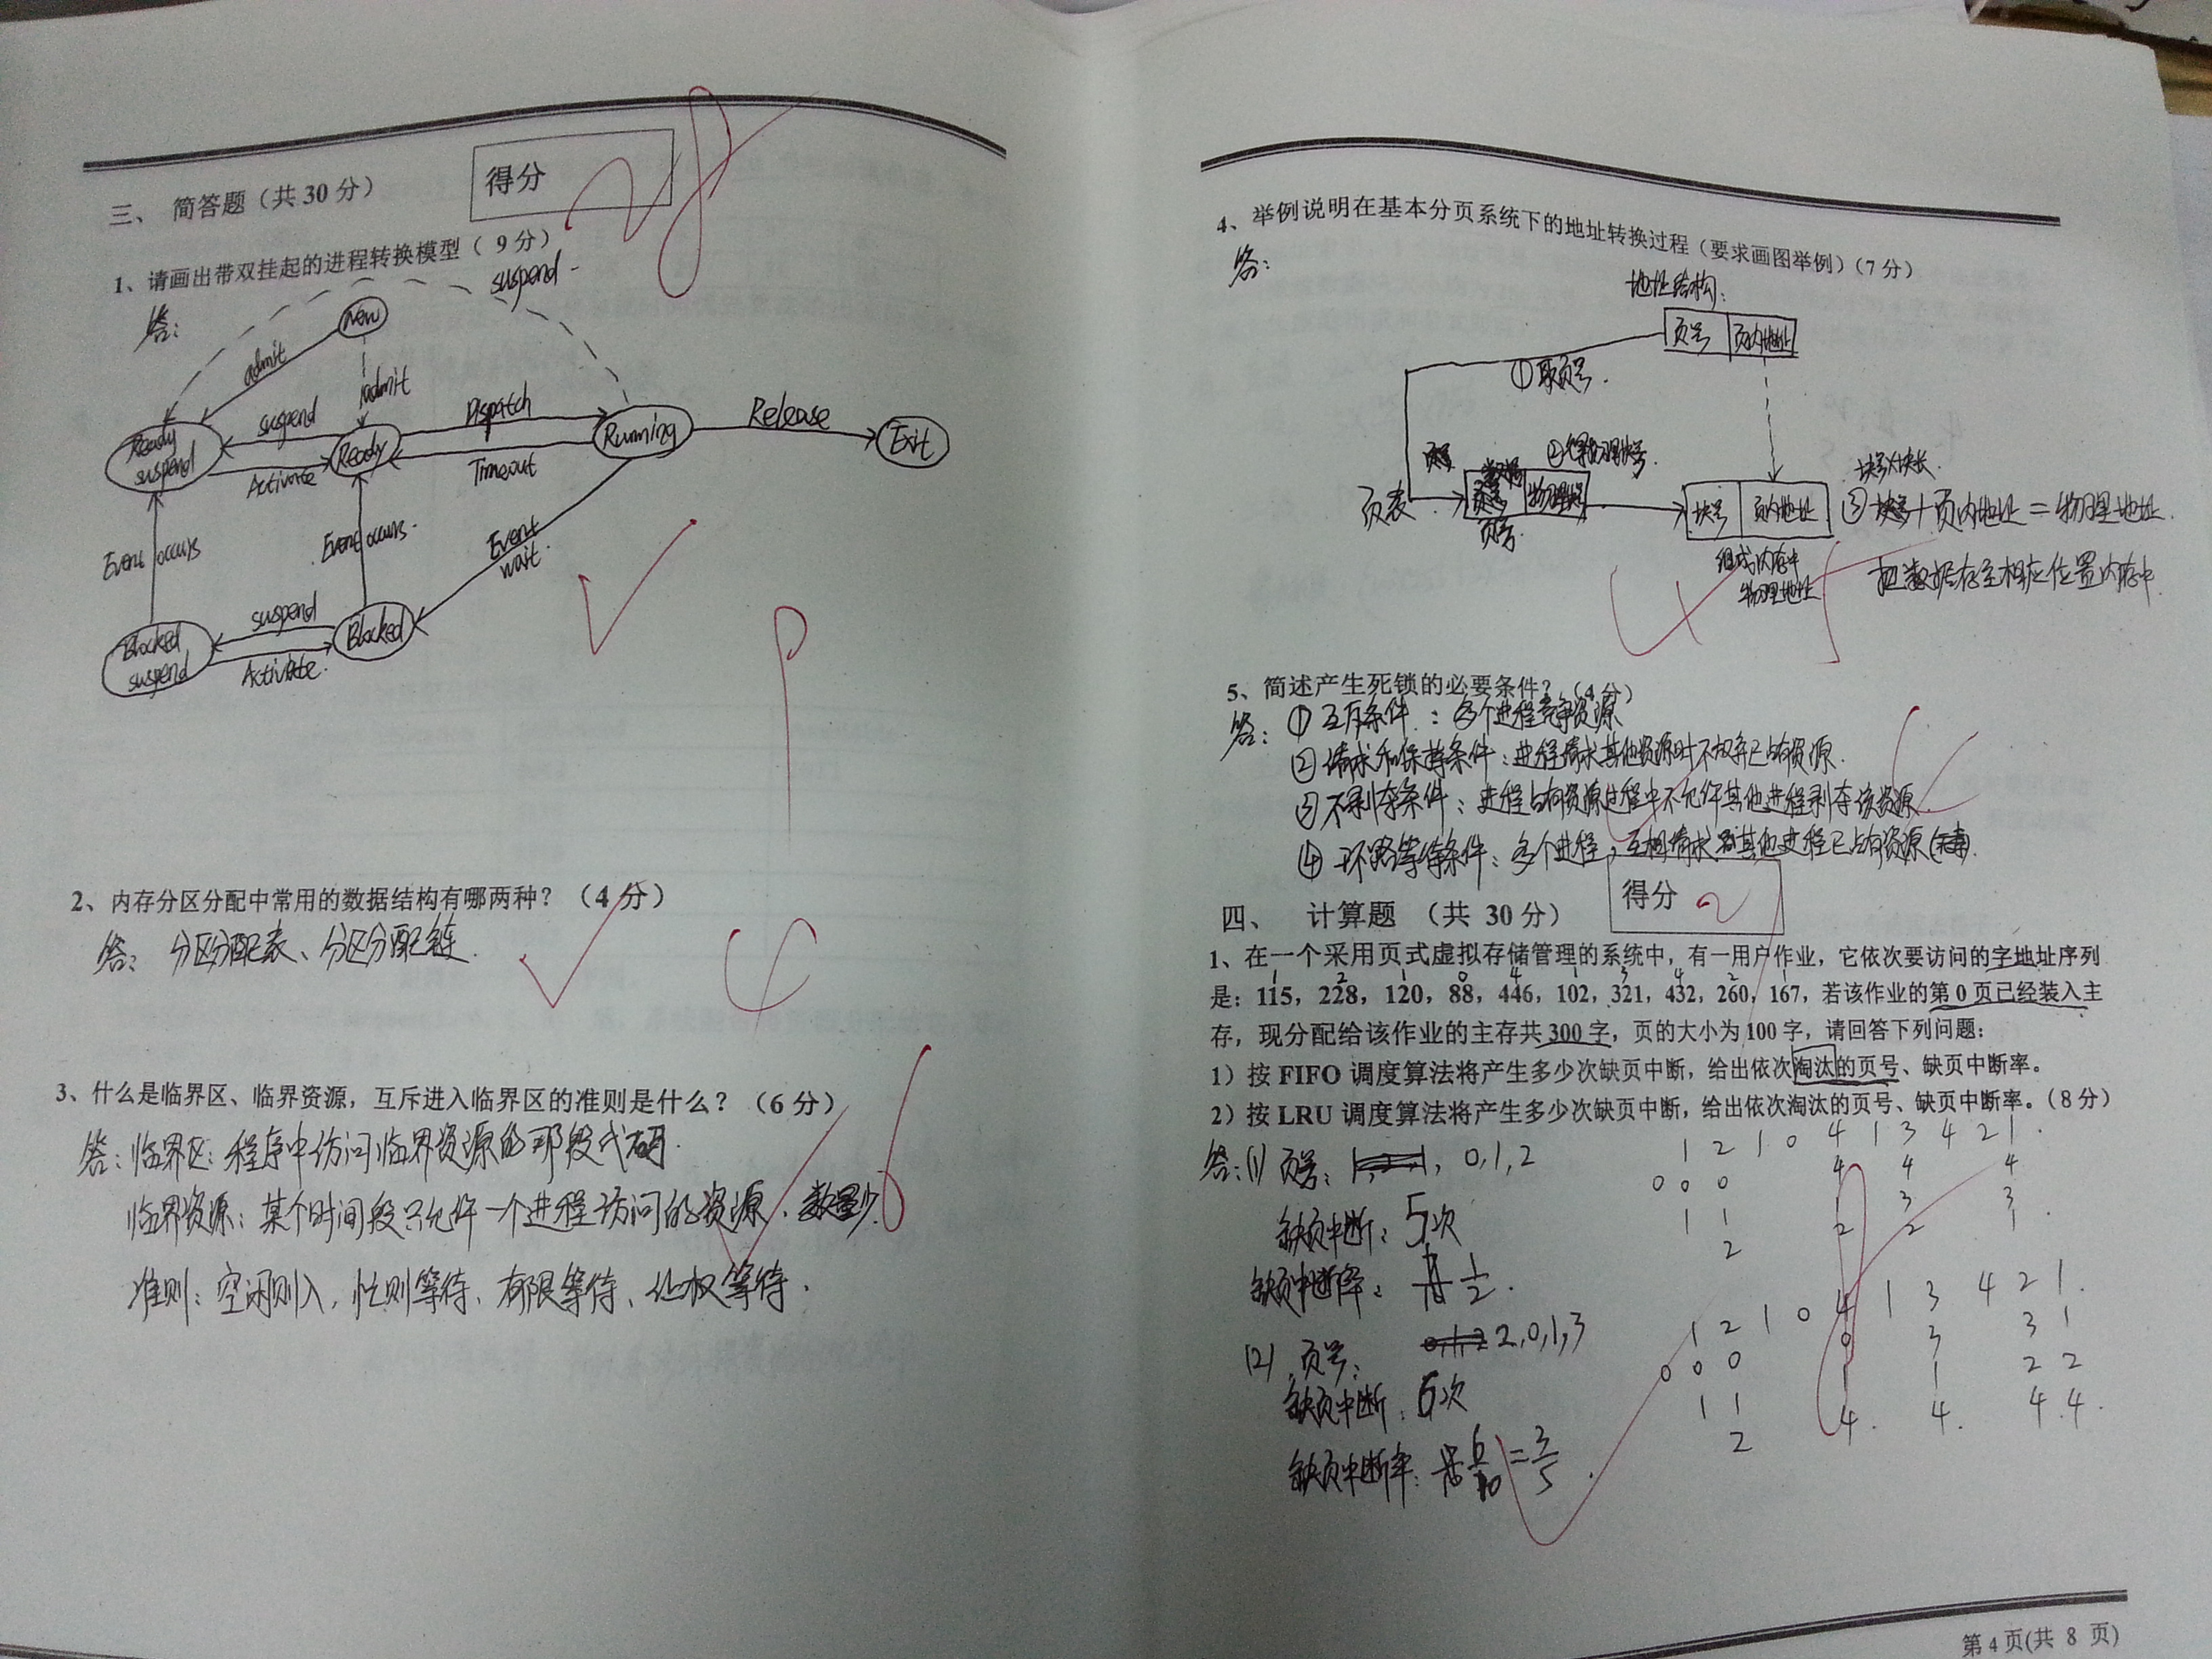 三、 简答题（共 30 分）
得分
28
1、请画出带双挂起的进程转换模型（ 9 分）
答：
suspend
New
admit
admit
Ready suspend
suspend
Activate
Ready
Dispatch
Timeout
Running
Release
Exit
Event occurs
Event occurs
Event wait
Blocked suspend
suspend
Activate
Blocked
2、内存分区分配中常用的数据结构有哪两种？（4 分）
答：分区分配表、分区分配链.
4
3、什么是临界区、临界资源，互斥进入临界区的准则是什么？（6 分）
答：临界区：程序中访问临界资源的那段代码.
临界资源：某个时间段只允许一个进程访问的资源.
6
准则：空闲则入，忙则等待、有限等待、让权等待.
4、举例说明在基本分页系统下的地址转换过程（要求画图举例）（7 分）
答：
地址结构：
页号 页内地址
①取页号.
页表
页号 物理块号
块号 页内地址
块号×块长
③ 块号+页内地址=物理地址.
组成内存中
物理地址
把数据存至相应位置内存中
5、简述产生死锁的必要条件？（4 分）
答：①互斥条件：多个进程竞争资源
②请求和保持条件：进程请求其他资源时不放弃已占有资源.
③不剥夺条件：进程占有资源过程中不允许其他进程剥夺该资源
④环路等待条件：多个进程，互相请求其他进程已占有资源
四、 计算题 （共 30 分）
得分
1、在一个采用页式虚拟存储管理的系统中，有一用户作业，它依次要访问的字地址序列
1 2 1 0 4 1 3 4 2 1
是：115，228，120，88，446，102，321，432，260，167，若该作业的第 0 页已经装入主
存，现分配给该作业的主存共 300 字，页的大小为 100 字，请回答下列问题：
1）按 FIFO 调度算法将产生多少次缺页中断，给出依次淘汰的页号、缺页中断率。
2）按 LRU 调度算法将产生多少次缺页中断，给出依次淘汰的页号、缺页中断率。（8 分）
答：(1) 页号： 0,1,2
1 2 1 0 4 1 3 4 2 1
4 4 4
0 0 0 1 3 3
1 1 2 2 1
2
缺页中断：5次
缺页中断率： 1/2.
(2) 页号： 2,0,1,3
1 2 1 0 4 1 3 4 2 1.
0 3 3 1
0 0 0 1 1 2 2
1 1 4. 4. 4.4.
2
缺页中断：6次
缺页中断率： 6/10=3/5.
第 4 页(共 8 页)